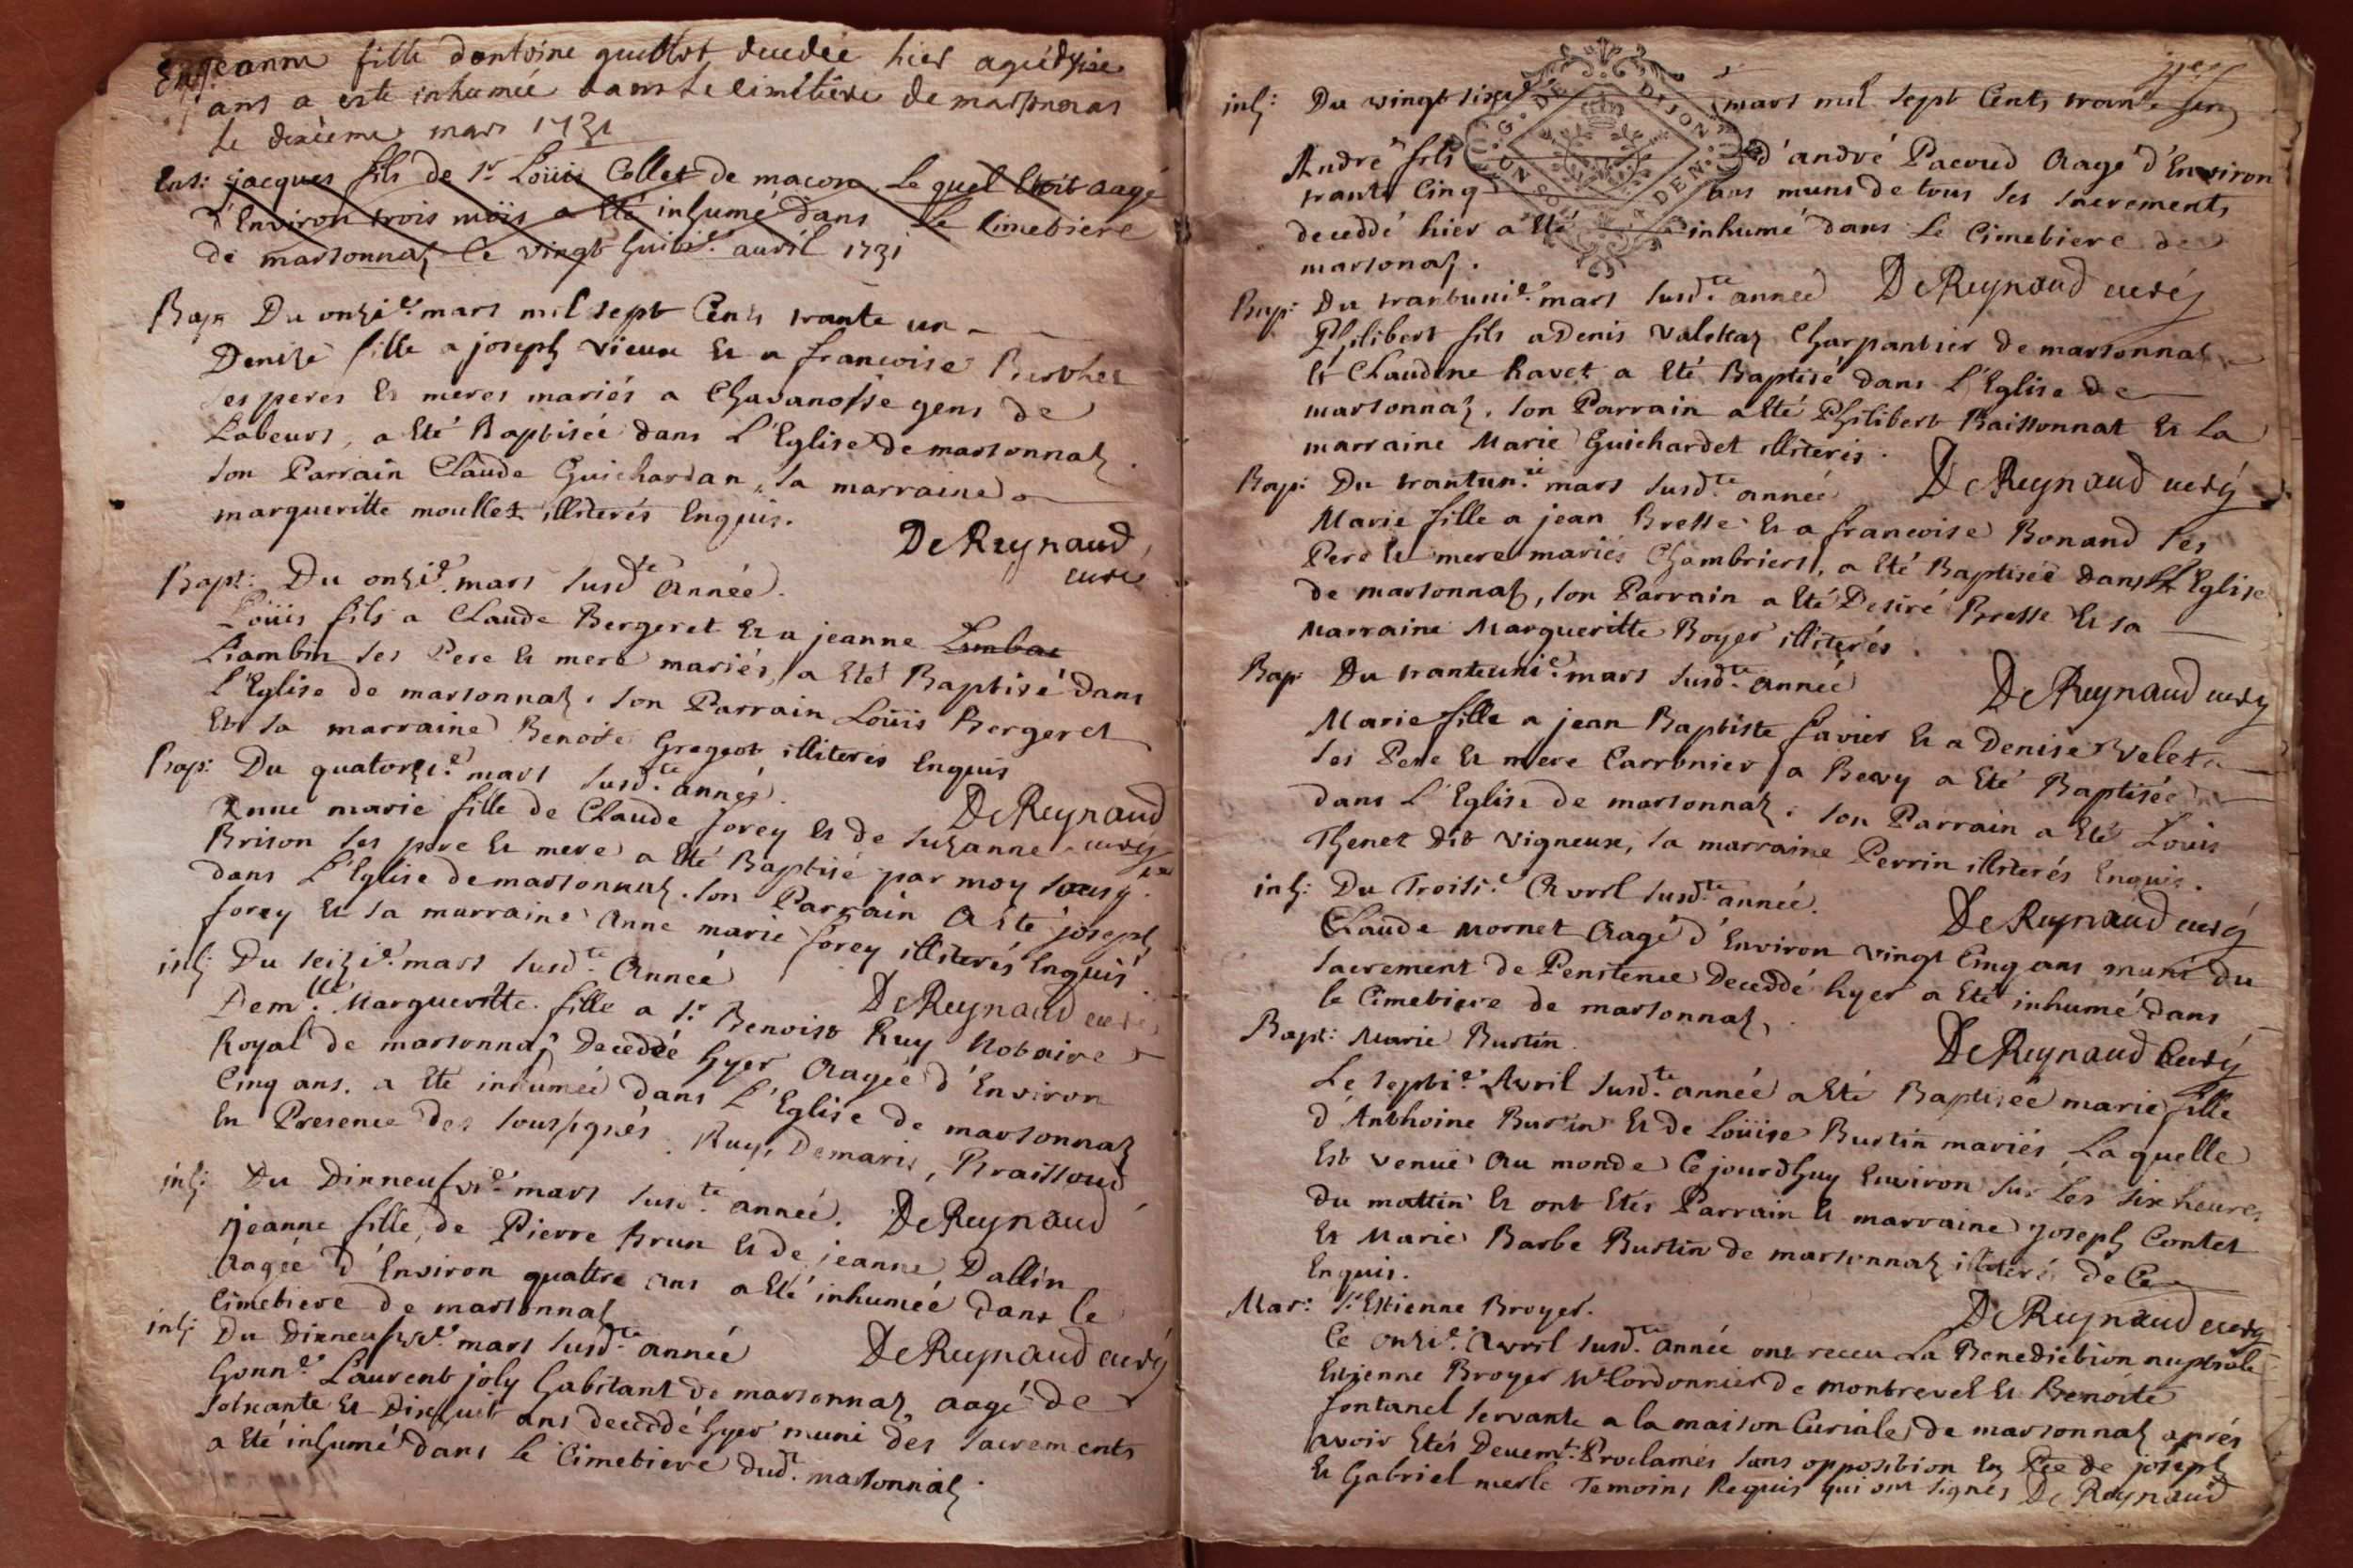 Ent: Jeanne fille dantoine guillot decedée hier agée de
ans a este inhumée dans le cimetiere de marsonas
le dexieme mars 1731
Ent: jacques fils de Sr Loüis Collet de macon, Le quel Etoit aagé
d'Environ trois mois a Eté inhumé dans Le Cimetiere
de marsonnaz Le vingt huitie. auril 1731
Bap: Du onzie. mars mil sept Cents trante un
Denise fille a joseph vieux Et a francoise
ses peres Et meres mariés a Chavanosse gens de
Labeurs, a Eté Baptisée dans L'Eglise de marsonnaz.
son Parrain Claude Guichardan, sa marraine
margueritte moullet illiterés Enquis.
De Reynaud
curé
Bapt: Du onzie. mars susdte année.
Loüis fils a Claude Bergeret Et a jeanne
Liambin ses Pere Et mere mariés, a Eté Baptisé dans
L'Eglise de marsonnaz. son Parrain Loüis Bergeret
Et sa marraine Benoite Gregeot illiterés Enquis
Bap: Du quatorzie. mars susdte année.
De Reynaud
Anne marie fille de Claude forey Et de suzanne curé
Brison ses pere Et mere a Eté Baptisé par moy sousg.
dans L'Eglise de marsonnaz. son Parrain a Eté joseph
forey Et sa marraine Anne marie forey illiterés Enquis.
inh: Du seizie. mars susdte Année
De Reynaud curé
Demlle. Margueritte fille a Sr Benoist Ruy Notaire
Royal de marsonnaz Decedée hyer Aagée d'Environ
Cinq ans. a Eté inhumée dans L'Eglise de marsonnaz
En Presence des soussignés. Ruy, Demaris, Braissoud
inh: Du Dixneufvie. mars susdte année. De Reynaud
jeanne fille de Pierre Brun Et de jeanne Dallin
Aagée d'Environ quattre ans a Eté inhumée dans le
Cimetiere de marsonnaz
inh: Du Dixneufvie. mars susdte année De Reynaud curé
honne. Laurent joly habitant de marsonnaz, aagé de
soixante Et Dixhuit ans decedé hyer muni des sacrements
a Eté inhumé dans Le Cimetiere dudt. marsonnaz.
inh: Du vingt sixie. mars mil sept Cents trante un
G. DE DIJON
André fils d'andré Pacoud Aagé d'Environ
trante Cinq ans muns de tous ses sacrements
deceddé hier a Eté inhumé dans Le Cimetiere de
marsonaz.
Bap: Du trantunie. mars susdte année De Reynaud curé
Philibert fils a Denis Charpantier de marsonnaz
Et Claudine Ravet a Eté Baptisé dans L'Eglise de
marsonnaz. son Parrain a Eté Philibert Baissonnat Et La
marraine Marie Guichardet illiteris.
Bap: Du trantunie. mars susdte année De Reynaud curé
Marie fille a jean Bresse Et a francoise Bonand ses
Pere Et mere mariés Chambriers, a Eté Baptisée dans L'Eglise
de marsonnaz, son Parrain a Eté Desiré Bresse Et sa
Marraine Margueritte Boyer illiterés.
Bap: Du tranteunie. mars susdte année
De Reynaud curé
Marie fille a jean Baptiste favier Et a Denise Velet
ses Pere Et mere Carronier a Bevy a Eté Baptisée
dans L'Eglise de marsonnaz. son Parrain a Eté Louis
Thenet dit vigneux, sa marraine Perrin illiterés Enquis.
inh: Du Troisie. Avril susdte année.
De Reynaud curé
Claude mornet Aagé d'Environ vingt Cinq ans muni du
sacrement de Penitence Deceddé hyer a Eté inhumé dans
le Cimetiere de marsonnaz.
Bapt: Marie Bustin.
De Reynaud Curé
Le septie. Avril susdte année a Eté Baptisée marie fille
d'Anthoine Bustin Et de Loüise Bustin mariés Laquelle
Est venue Au monde Cejourdhuy Environ sur les six heures
du mattin Et ont Etés Parrain Et marraine joseph Contet
Et Marie Barbe Bustin de marsonnaz illiteré de Ce
Enquis.
Mar: Sr Estienne Broyer.
De Reynaud curé
Ce onzie. Avril susdte année ont receu La Benediction nuptiale
Estienne Broyer Me Cordonnier de montrevel Et Benoite
fontanel servante a la maison Curiale de marsonnaz aprés
avoir Etés Deuemt. Proclamés sans opposition En Pce de joseph
Et Gabriel merle Temoins Requis qui ont signés De Reynaud